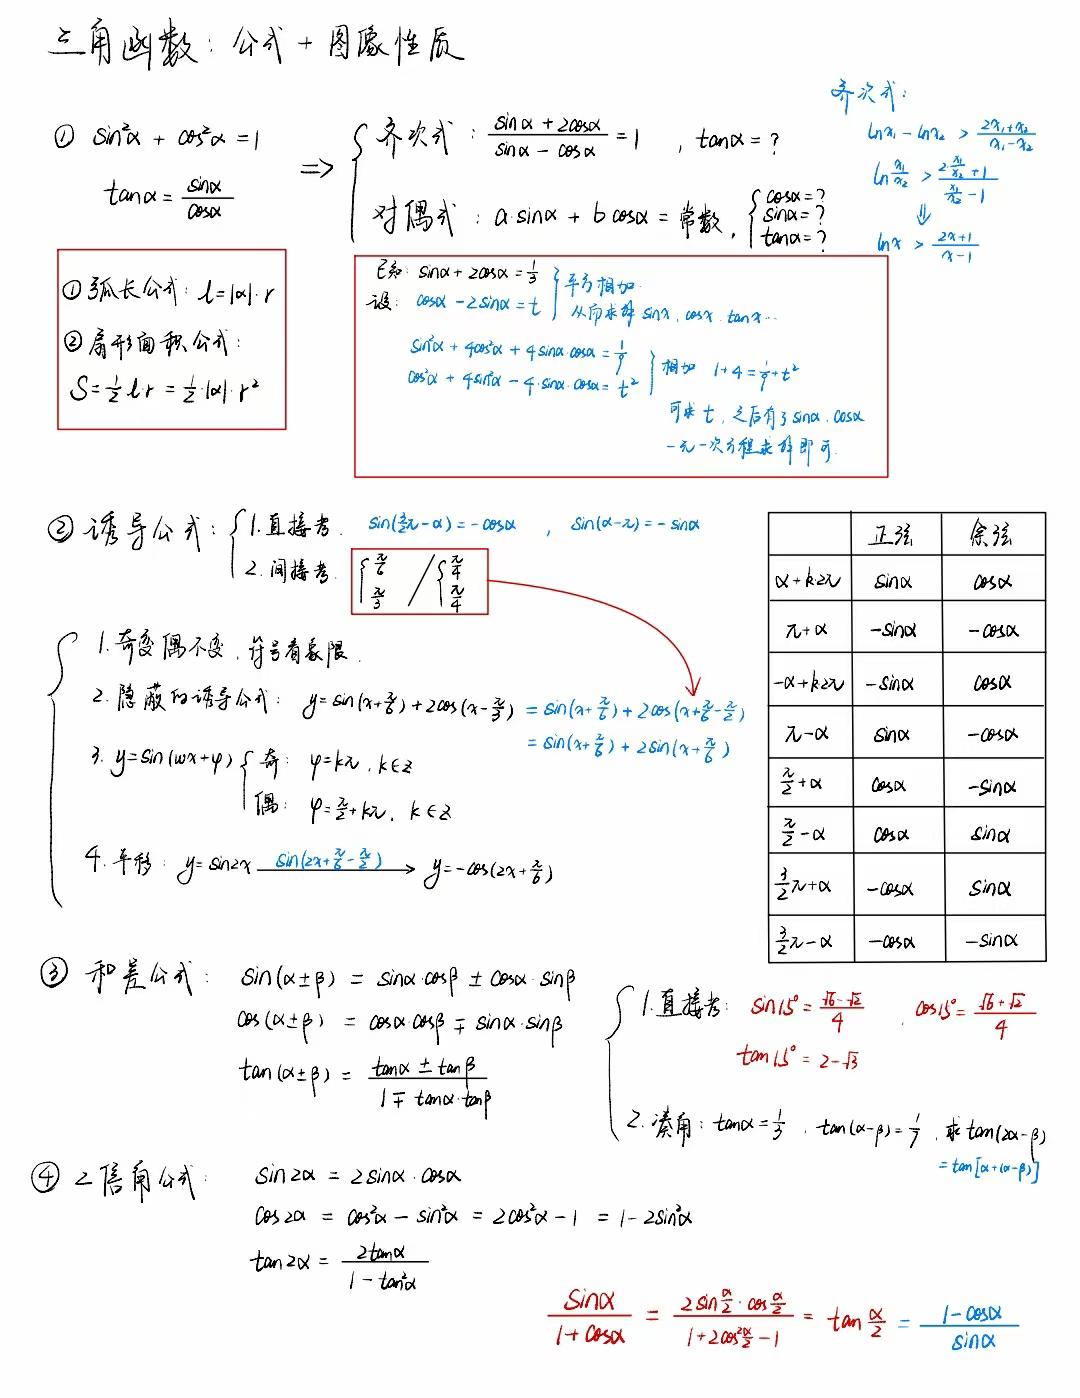 三角函数：公式 + 图像性质
① sin²α + cos²α = 1
tanα = sinα/cosα
⇒ { 齐次式：(sinα + 2cosα)/(sinα - cosα) = 1 , tanα = ?
对偶式：a·sinα + b cosα = 常数, { cosα = ? sinα = ? tanα = ?
齐次式：
lnx₁ - lnx₂ > (2x₁+x₂)/(x₁-x₂)
ln x₁/x₂ > (2·x₁/x₂ + 1)/(x₁/x₂ - 1)
⇓
lnx > (2x+1)/(x-1)
① 弧长公式：l = |α|·r
② 扇形面积公式：
S = 1/2 l·r = 1/2·|α|·r²
已知：sinα + 2cosα = 1/3
设：cosα - 2sinα = t
} 平方相加
从而求解 sinx, cosx, tanx…
sin²α + 4cos²α + 4sinα·cosα = 1/9
cos²α + 4sin²α - 4·sinα·cosα = t²
} 相加 1+4 = 1/9 + t²
可求 t, 之后有了 sinα, cosα
一元一次方程求解即可.
② 诱导公式：{ 1. 直接考. sin(3/2π - α) = -cosα , sin(α-π) = -sinα
2. 间接考. { π/6 π/3 / { π/4 π/4
{ 1. 奇变偶不变, 符号看象限.
2. 隐蔽的诱导公式：y = sin(x+π/6) + 2cos(x-π/3) = sin(x+π/6) + 2cos(x+π/6-π/2)
= sin(x+π/6) + 2sin(x+π/6)
3. y = sin(wx+φ) { 奇：φ = kπ, k∈z
偶：φ = π/2 + kπ, k∈z
4. 平移：y = sin2x sin(2x+π/6-π/2) → y = -cos(2x+π/6)
正弦 余弦
α+k·2π sinα cosα
π+α -sinα -cosα
-α+k·2π -sinα cosα
π-α sinα -cosα
π/2+α cosα -sinα
π/2-α cosα sinα
3/2π+α -cosα sinα
3/2π-α -cosα -sinα
③ 和差公式：sin(α±β) = sinα·cosβ ± cosα·sinβ
cos(α±β) = cosα·cosβ ∓ sinα·sinβ
tan(α±β) = (tanα ± tanβ)/(1 ∓ tanα·tanβ)
{ 1. 直接考：sin15° = (√6-√2)/4 , cos15° = (√6+√2)/4
tan15° = 2-√3
2. 凑角：tanα = 1/3 , tan(α-β) = 1/7 , 求 tan(2α-β)
= tan[α+(α-β)]
④ 2倍角公式：sin2α = 2sinα·cosα
cos2α = cos²α - sin²α = 2cos²α - 1 = 1 - 2sin²α
tan2α = 2tanα/(1 - tan²α)
sinα/(1+cosα) = (2sin α/2·cos α/2)/(1+2cos² α/2 - 1) = tan α/2 = (1-cosα)/sinα